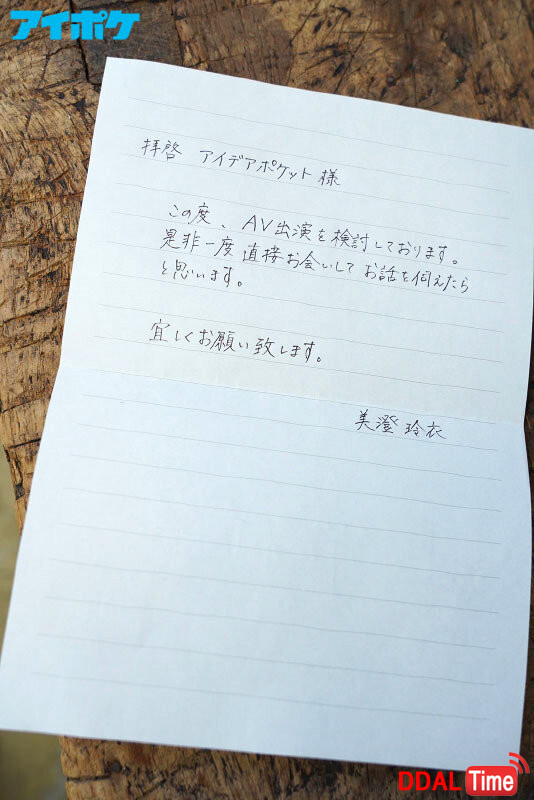 アイポケ
拝啓 アイデアポケット様
この度、AV出演を検討しております。
是非一度直接お会いしてお話を伺えたら
と思います。
宜しくお願い致します。
美澄玲衣
DDAL Time